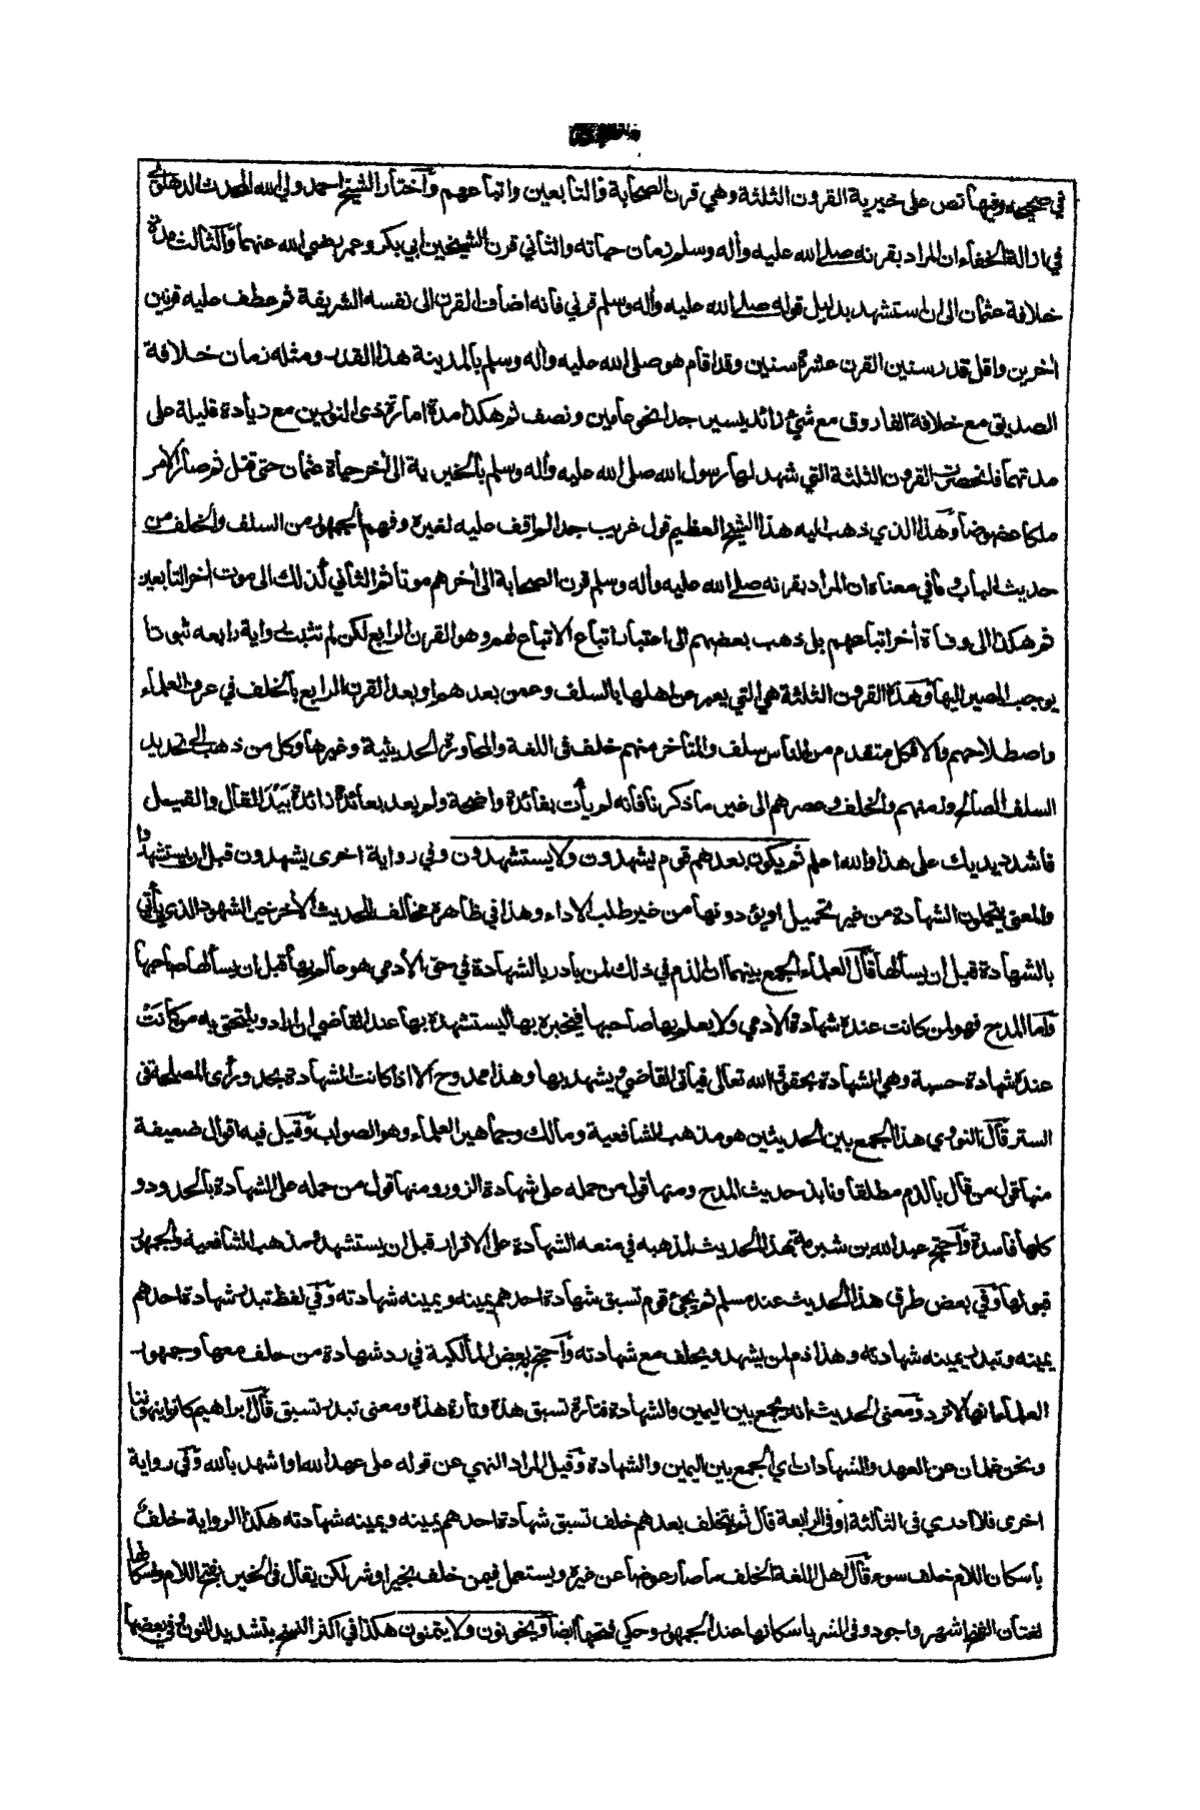 في صحيحه وفيها نص على خيرية القرون الثلثة وهي قرن الصحابة فالتابعين واتباعهم وأختار الشيخ احمد ولي الله المحدث الدهلوي
في ازالة الخفاء ان المراد بقرنه صلى الله عليه وأله وسلم زمان حياته والثاني قرن الشيخين ابي بكر وعمر رضي الله عنهما والثالث مدة
خلافة عثمان الى ان استشهد بدليل قوله صلى الله عليه وأله وسلم قرني فانه اضاف القرن الى نفسه الشريفة ثم عطف عليه قرنين
أخرين واقل قدر سنين القرن عشرة سنين وقد اقام هو صلى الله عليه وأله وسلم بالمدينة هذا القدر ومثله زمان خلافة
الصديق مع خلافة الفاروق مع شيء زائد يسير جدا نحو عامين ونصف ثم هكذا مدة امارة ذى النورين مع زيادة قليلة على
مدتهما فانحصرت القرون الثلثة التي شهد لها رسول الله صلى الله عليه وأله وسلم بالخيرية الى أخر حياة عثمان حتى قتل ثم صار الامر
ملكا عضوضا وهذا الذي ذهب اليه هذا الشيخ العظيم قول غريب جدا لم اقف عليه لغيره وفهم الجمهور من السلف والخلف من
حديث الباب وما في معناه ان المراد بقرنه صلى الله عليه وأله وسلم قرن الصحابة الى أخرهم موتا ثم الثاني كذلك الى موت أخر التابعين
ثم هكذا الى وفاة أخر اتباعهم بل ذهب بعضهم الى اعتبار اتباع الاتباع لهم وهو القرن الرابع لكن لم تثبت رواية رابعه ثبوتا
يوجب المصير اليها وهذه القرون الثلثة هي التي يعبر عن اهلها بالسلف وعمن بعدهم او بعد القرن الرابع بالخلف في عرف العلماء
واصطلاحهم والا فكل متقدم من الناس سلف والمتأخر منهم خلف في اللغة والمحاورة الحديثية وغيرها وكل من ذهب الى تحديد
السلف الصالح وزمنهم والخلف وعصرهم الى غير ما ذكرنا فانه لم يأت بفائدة واضحة ولم يعد بعائدة زائدة بيد المقال والقيل
فاشدد يديك على هذا والله اعلم ثم يكون بعدهم قوم يشهدون ولا يستشهدون وفي رواية اخرى يشهدون قبل ان يستشهدوا
والمعنى يتحملون الشهادة من غير تحميل او يؤدونها من غير طلب الاداء وهذا في ظاهره مخالف للحديث الأخر خير الشهود الذي يأتي
بالشهادة قبل ان يسألها قال العلماء الجمع بينهما ان الذم في ذلك لمن بادر بالشهادة في حق الأدمي هو عالم بها قبل ان يسألها صاحبها
وأما المدح فهو لمن كانت عنده شهادة الأدمي ولا يعلم بها صاحبها فيخبره بها ليستشهده بها عند القاضي ان اراد ويلتحق به من كانت
عنده شهادة حسبة وهي الشهادة بحقوق الله تعالى فيأتى القاضي ويشهد بها وهذا ممدوح الا اذا كانت الشهادة بحد ورأى المصلحة فى
الستر قال النووي هذا الجمع بين الحديثين هو مذهب الشافعية ومالك وجماهير العلماء وهو الصواب وقيل فيه اقوال ضعيفة
منها قول من قال بالذم مطلقا ونابذ حديث المدح ومنها قول من حمله على شهادة الزور ومنها قول من حمله على الشهادة بالحدود و
كلها فاسدة وأحتج عبد الله بن شبرمة بهذا الحديث لمذهبه في منعه الشهادة على الاقرار قبل ان يستشهد ومذهب الشافعية والجمهور
قبولها وفي بعض طرق هذا الحديث عند مسلم ثم يجئ قوم تسبق شهادة احدهم يمينه ويمينه شهادته وفي لفظ تبدر شهادة احدهم
يمينه وتبدر يمينه شهادته وهذا ذم لمن يشهد ويحلف مع شهادته وأحتج بعض المالكية في رد شهادة من حلف معها وجمهور
العلماء انها لا ترد ومعنى الحديث انه يجمع بين اليمين والشهادة فتارة تسبق هذه وتارة هذه ومعنى تبدر تسبق قال ابراهيم كانوا ينهوننا
ونحن غلمان عن العهد والشهادات اي الجمع بين اليمين والشهادة وقيل المراد النهي عن قوله على عهد الله او اشهد بالله وفي رواية
اخرى فلا ادري فى الثالثة او فى الرابعة قال ثم يتخلف بعدهم خلف تسبق شهادة احدهم يمينه ويمينه شهادته هكذا الرواية خلف
بأسكان اللام خلف سوء قال اهل اللغة الخلف ما صار عوضا عن غيره ويستعمل فيمن خلف بخير او شر لكن يقال فى الخير بفتح اللام واسكانها
لغتان الفتح اشهر واجود وفى الشر باسكانها عند الجمهور وحكي فتحها ايضا ويخونون ولا يتمنون هكذا في اكثر النسخ بتشديد النون وفي بعضها